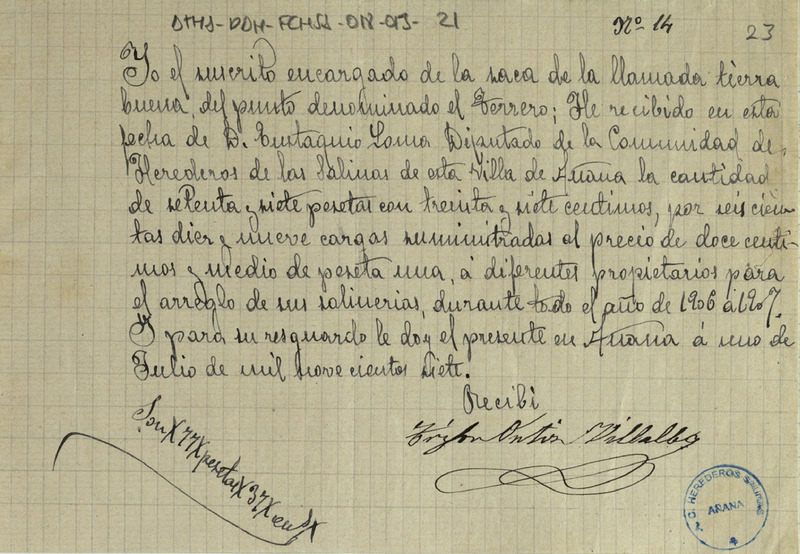 Nº 14
23
Yo el suscrito encargado de la saca de la llamada tierra
buena, del punto denominado el Terrero; He recibido en esta
fecha de D. Eustaquio Loma Diputado de la Comunidad de
Herederos de las Salinas de esta Villa de Añana la cantidad
de setenta y siete pesetas con treinta y siete centimos, por seis cien-
tas diez y nueve cargas suministradas al precio de doce centi-
mos y medio de peseta una, á diferentes propietarios para
el arreglo de sus salinerias, durante todo el año de 1906 á 1907.
Y para su resguardo le doy el presente en Añana á uno de
Julio de mil nove cientos siete.
Recibi
Ortiz Villalba
Son X 77 X pesetas X 37 X cen
HEREDEROS SALINAS
AÑANA